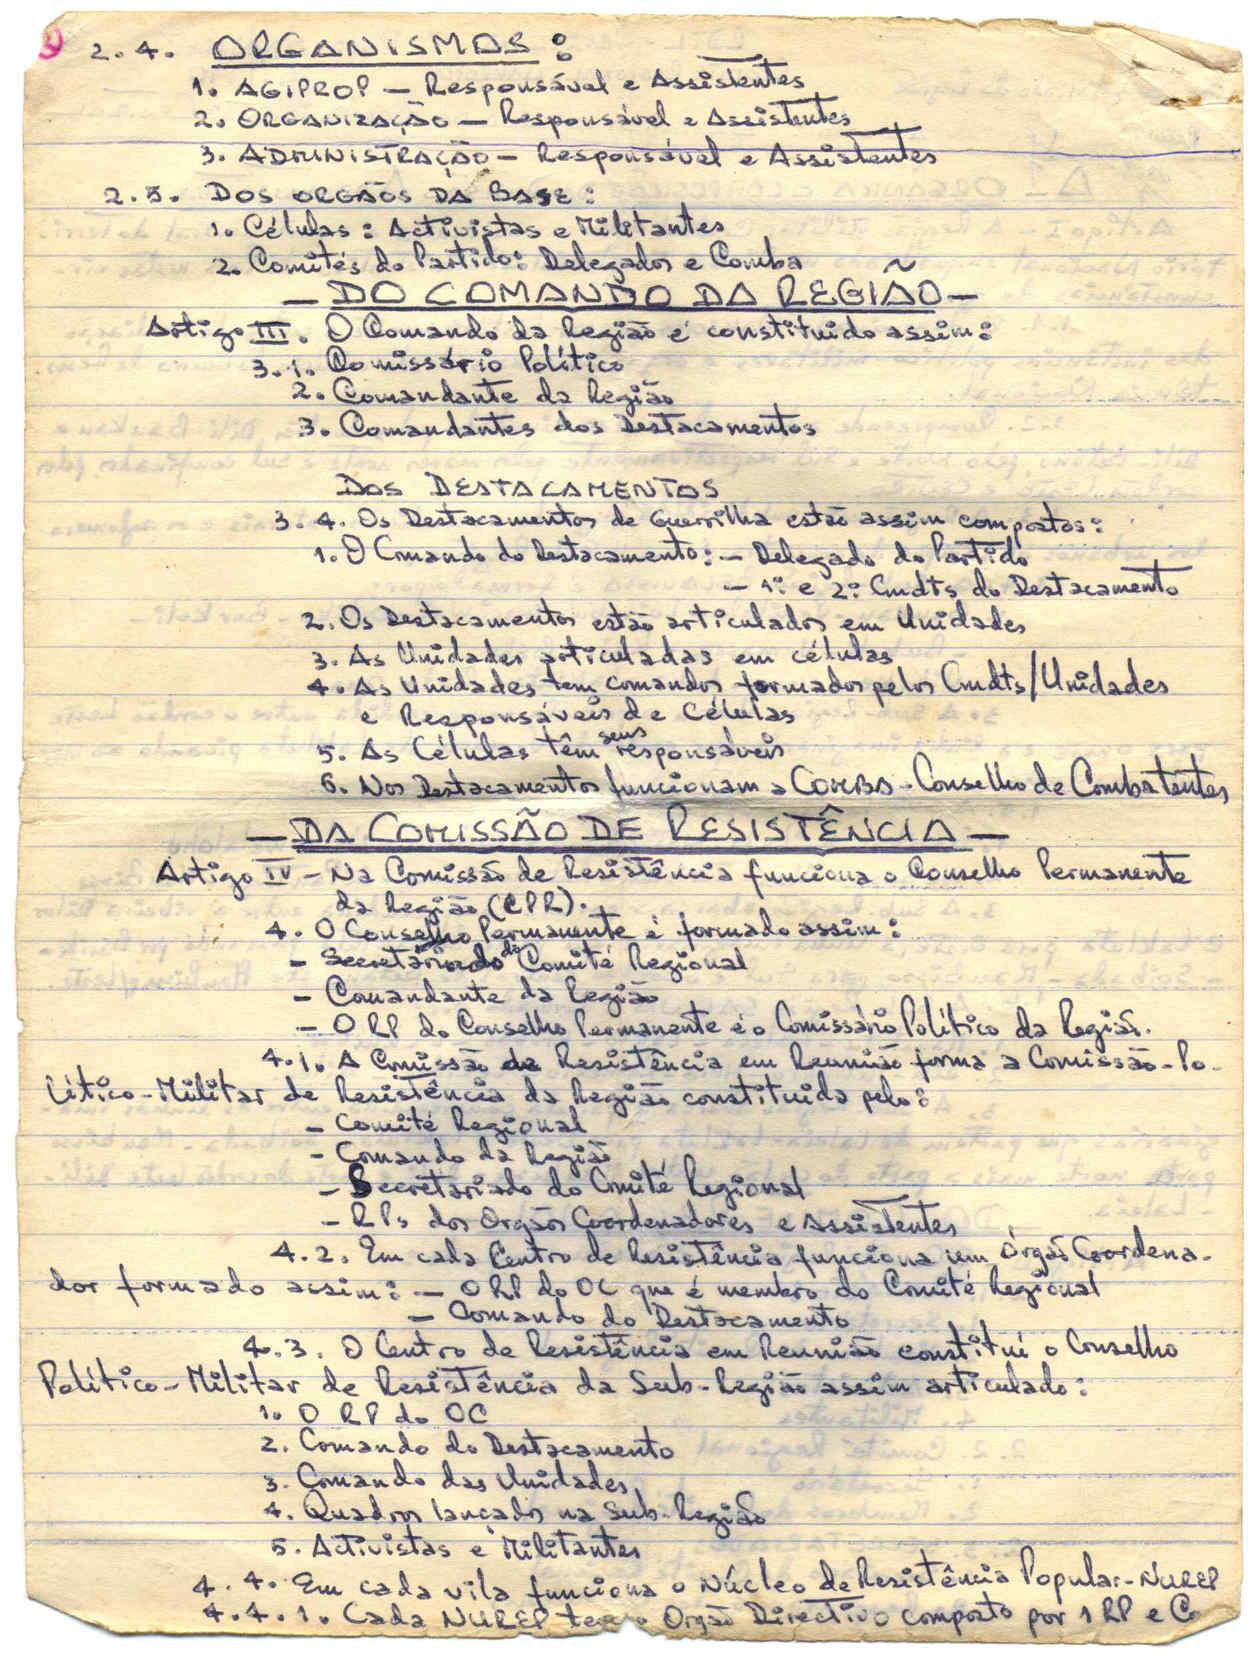 2.4. ORGANISMOS:
1. AGIPROP — Responsável e Assistentes
2. ORGANIZAÇÃO — Responsável e Assistentes
3. ADMINISTRAÇÃO — Responsável e Assistentes
2.5. DOS ORGÃOS DA BASE:
1. Células: Activistas e Militantes
2. Comités do Partido: Delegados e Comba
— DO COMANDO DA REGIÃO —
Artigo III. O Comando da Região é constituido assim:
3.1. Comissário Político
2. Comandante da Região
3. Comandantes dos Destacamentos
DOS DESTACAMENTOS
3.4. Os Destacamentos de Guerrilha estão assim compostos:
1. O Cmando do Destacamento: — Delegado do Partido
— 1º e 2º Cmdts do Destacamento
2. Os Destacamentos estão articulados em Unidades
3. As Unidades articuladas em células
4. As Unidades tem comandos formados pelos Cmdts/Unidades
e Responsáveis de Células
5. As Células têm seus responsáveis
6. Nos Destacamentos funcionam a COMBA - Conselho de Combatentes
— DA COMISSÃO DE RESISTÊNCIA —
Artigo IV — Na Comissão de Resistência funciona o Conselho Permanente
da Região (CPR).
4. O Conselho Permanente é formado assim:
- Secretariado do Comité Regional
- Comandante da Região
- O RP do Conselho Permanente é o Comissário Político da Região.
4.1. A Comissão de Resistência em Reunião forma a Comissão-Po-
lítico-Militar de Resistência da Região constituida pelo:
- Comité Regional
- Comando da Região
- Secretariado do Cmité Regional
- RPs dos Orgãos Coordenadores e Assistentes
4.2. Em cada Centro de Resistência funciona um Órgão Coordena-
dor formado assim: — O RP do OC que é membro do Comité Regional
— Comando do Destacamento
4.3. O Centro de Resistência em Reunião constitui o Conselho
Político-Militar de Resistência da Sub-Região assim articulado:
1. O RP do OC
2. Comando do Destacamento
3. Cmando das Unidades
4. Quadros lançados na Sub-Região
5. Activistas e Militantes
4.4. Em cada vila funciona o Núcleo de Resistência Popular-NUREP
4.4.1. Cada NUREP tem o Orgão Directivo composto por 1 RP e